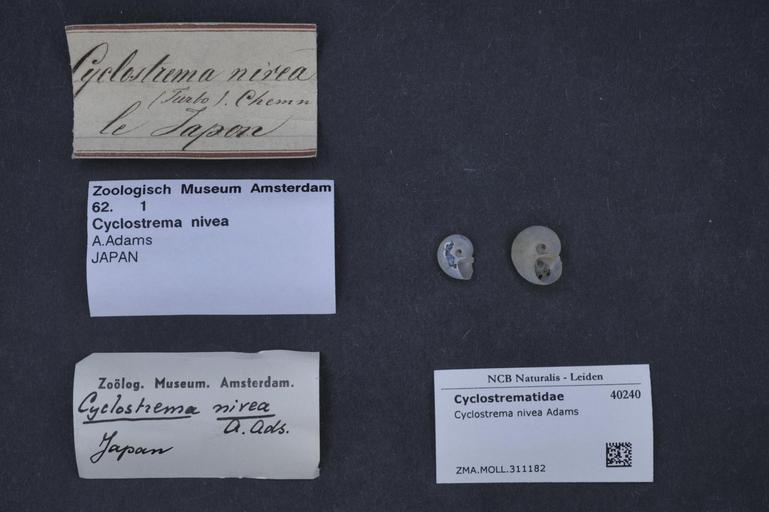 Cyclostrema nivea
(Turbo). Chemn
le Japon
Zoologisch Museum Amsterdam
62. 1
Cyclostrema nivea
A.Adams
JAPAN
Zoölog. Museum. Amsterdam.
Cyclostrema nivea
A. Ads.
Japan
NCB Naturalis - Leiden
Cyclostrematidae 40240
Cyclostrema nivea Adams
ZMA.MOLL.311182